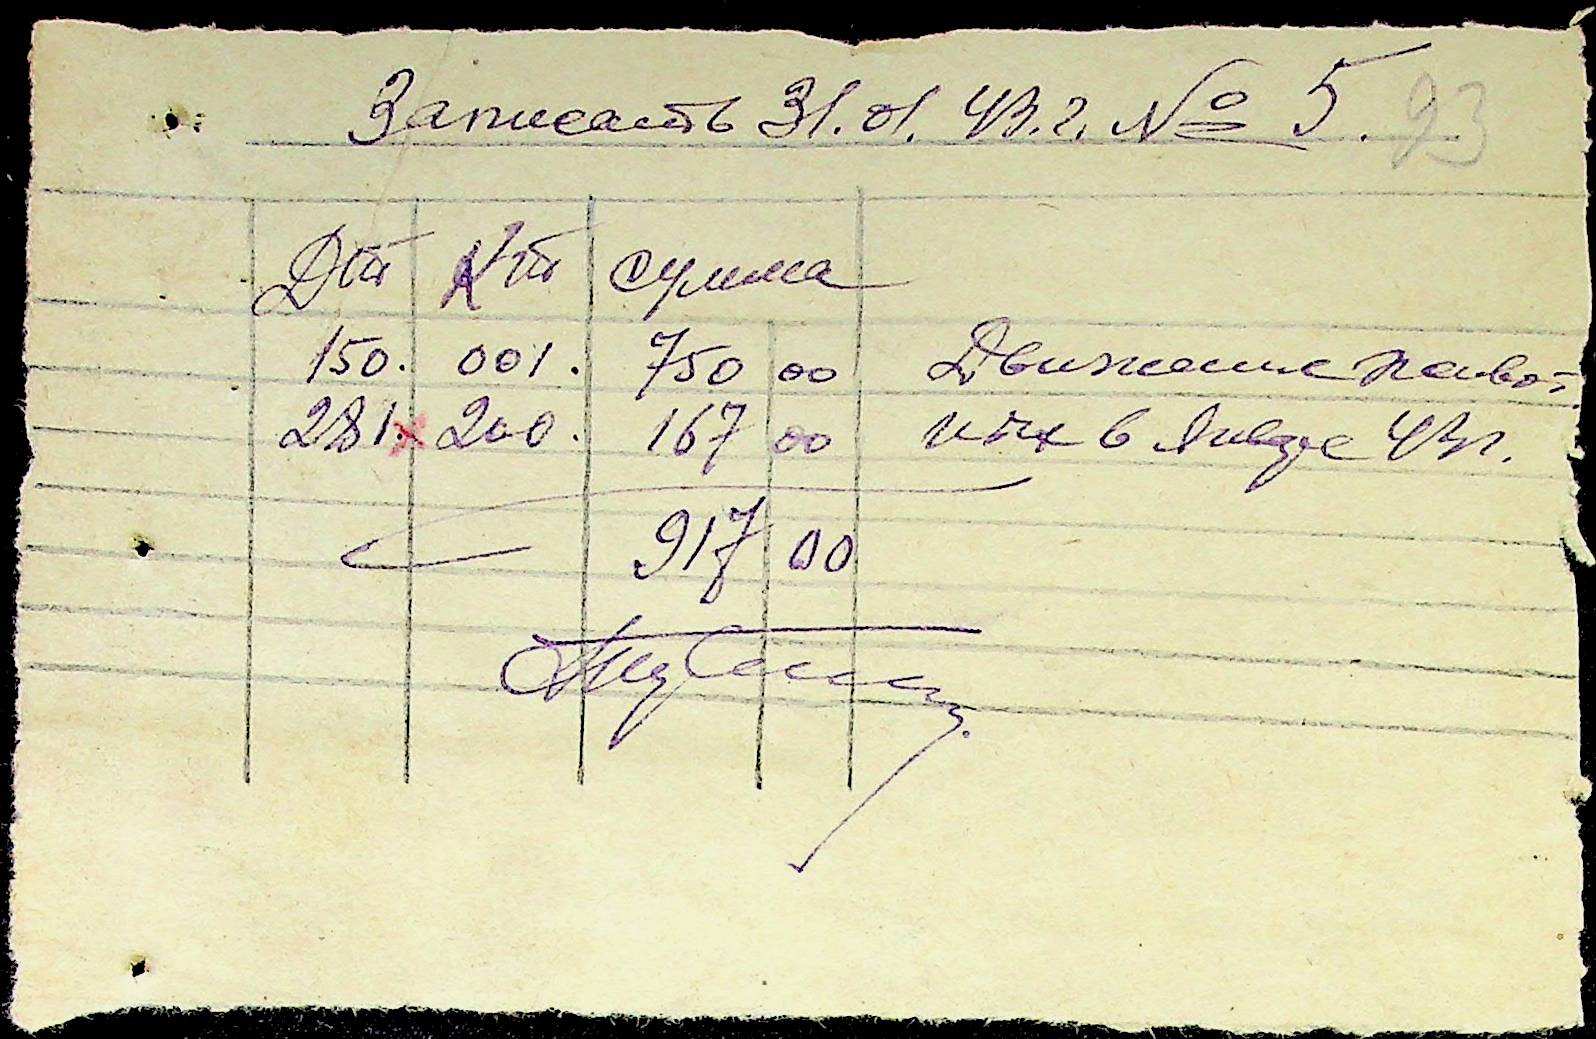 Записать 31.01.43.г. № 5. 93
Дт Кт сумма
150. 001. 750 00 Движение живот-
281. 200. 167 00 ных в Январе 43г.
917 00